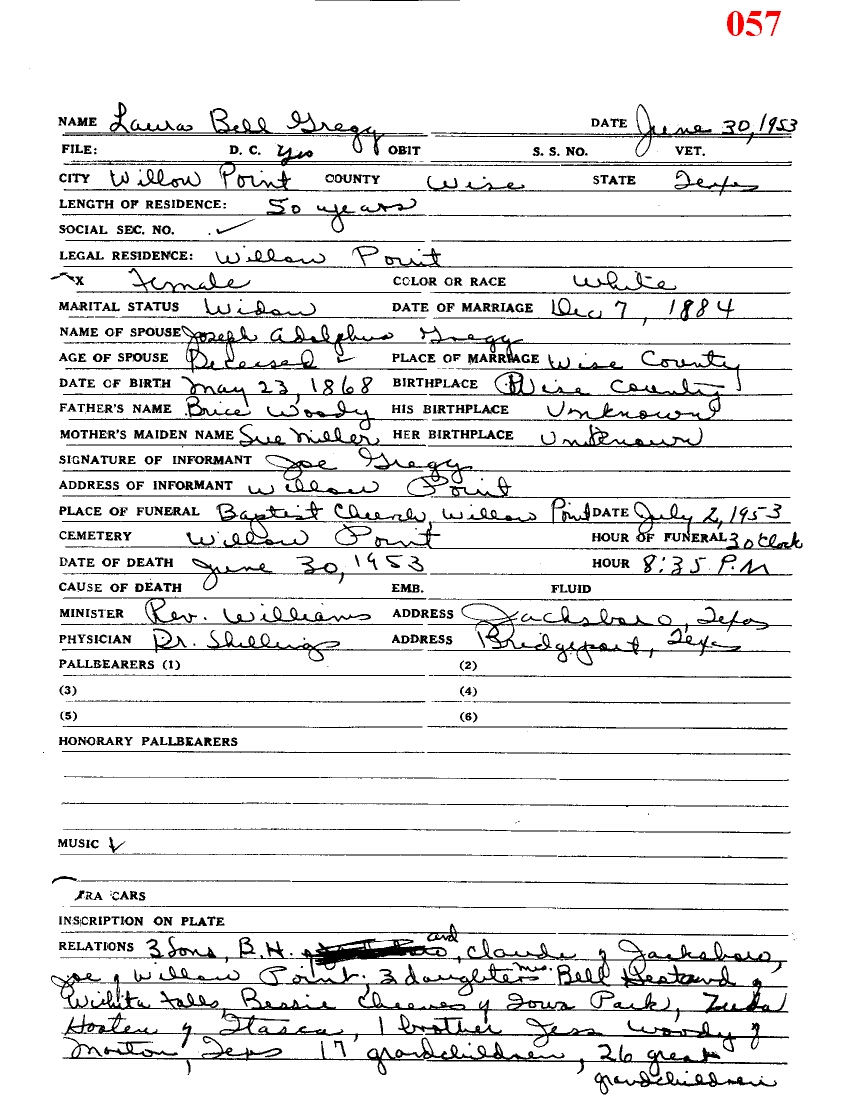 057
NAME Laura Bell Gregg DATE June 30, 1953
FILE: D. C. Yes OBIT S. S. NO. VET.
CITY Willow Point COUNTY Wise STATE Texas
LENGTH OF RESIDENCE: 50 years
SOCIAL SEC. NO. ✓
LEGAL RESIDENCE: Willow Point
X Female COLOR OR RACE White
MARITAL STATUS Widow DATE OF MARRIAGE Dec 7, 1884
NAME OF SPOUSE Joseph Adolphus Gregg
AGE OF SPOUSE Deceased ✓ PLACE OF MARRIAGE Wise County
DATE OF BIRTH May 23, 1868 BIRTHPLACE Wise County
FATHER'S NAME Brice Woody HIS BIRTHPLACE Unknown
MOTHER'S MAIDEN NAME Sue Miller HER BIRTHPLACE Unknown
SIGNATURE OF INFORMANT Joe Gregg
ADDRESS OF INFORMANT Willow Point
PLACE OF FUNERAL Baptist Church, Willow Point DATE July 2, 1953
CEMETERY Willow Point HOUR OF FUNERAL 3 oClock
DATE OF DEATH June 30, 1953 HOUR 8:35 P.M
CAUSE OF DEATH EMB. FLUID
MINISTER Rev. Williams ADDRESS Jacksboro, Texas
PHYSICIAN Dr. Shillings ADDRESS Bridgeport, Texas
PALLBEARERS (1) (2)
(3) (4)
(5) (6)
HONORARY PALLBEARERS
MUSIC ✓
TRA CARS
INSCRIPTION ON PLATE
RELATIONS 3 Sons, B.H. and, Claude of Jacksboro,
Joe of Willow Point, 3 daughters Mrs. Bell Hestand of
Wichita Falls, Bessie Cheeves of Iowa Park, Zuda
of Itasca, 1 brother Jess Woody of
Morton, Texas 17 grandchildren, 26 great
grandchildren